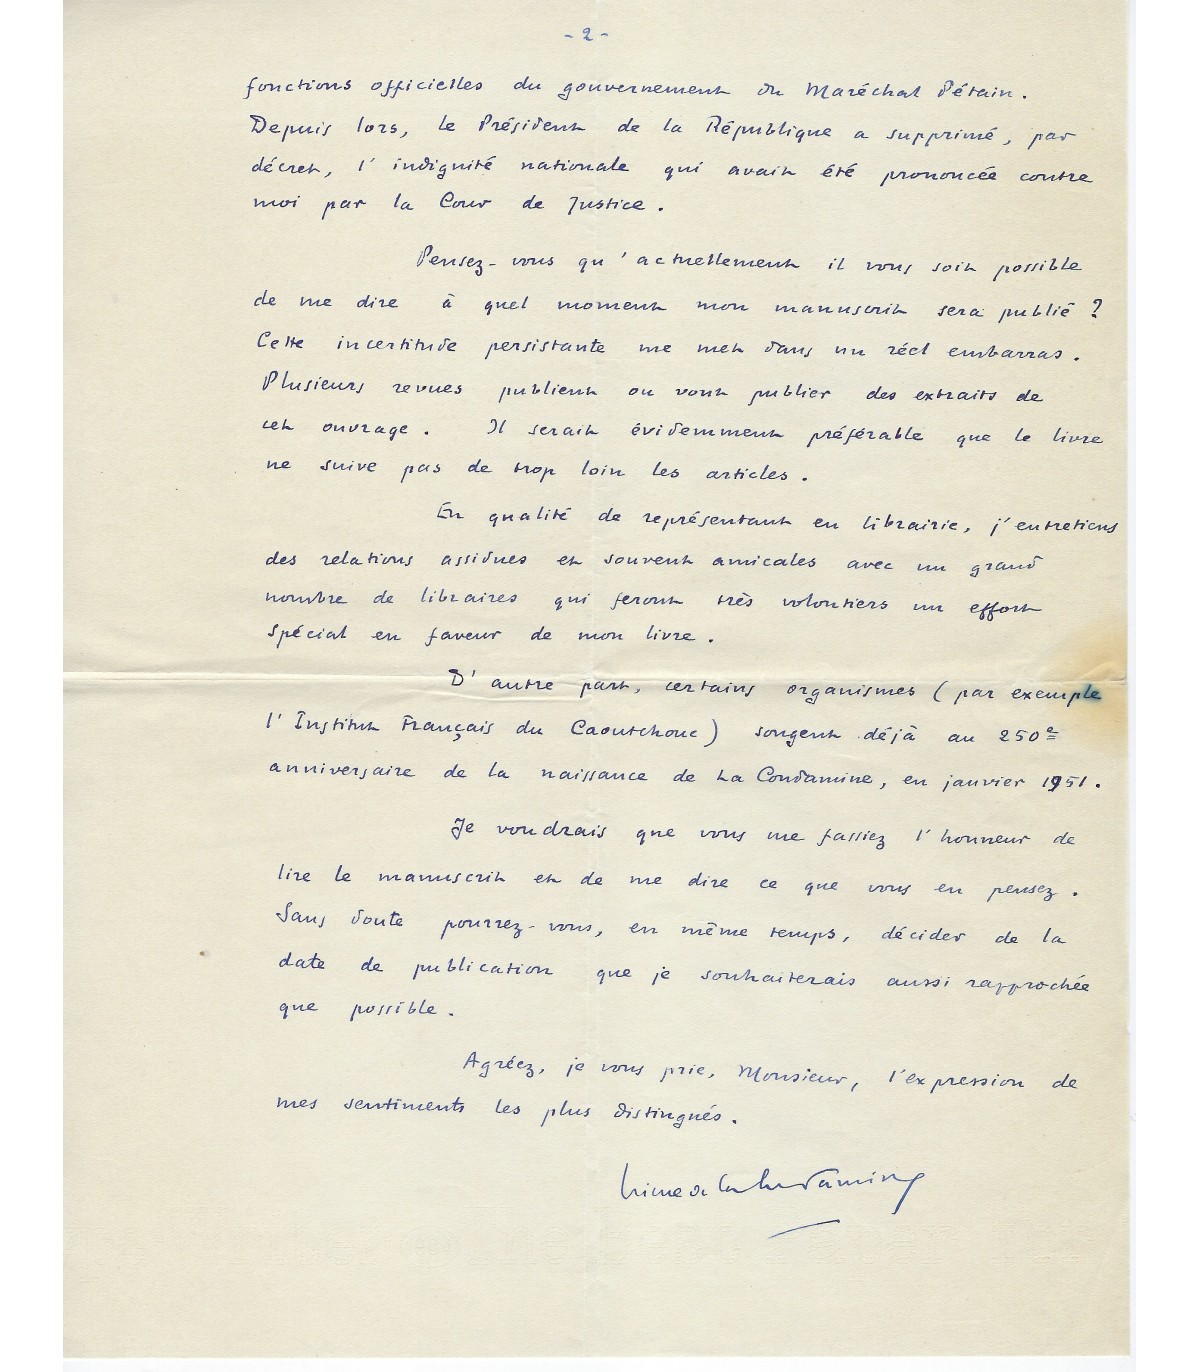 - 2 -
fonctions officielles du gouvernement du Maréchal Pétain.
Depuis lors, le Président de la République a supprimé, par
décret, l'indignité nationale qui avait été prononcée contre
moi par la Cour de Justice.
Pensez-vous qu'actuellement il vous soit possible
de me dire à quel moment mon manuscrit sera publié ?
Cette incertitude persistante me met dans un réel embarras.
Plusieurs revues publient ou vont publier des extraits de
cet ouvrage. Il serait évidemment préférable que le livre
ne suive pas de trop loin les articles.
En qualité de représentant en librairie, j'entretiens
des relations assidues et souvent amicales avec un grand
nombre de libraires qui feront très volontiers un effort
spécial en faveur de mon livre.
D'autre part, certains organismes (par exemple
l'Institut Français du Caoutchouc) songent déjà au 250e
anniversaire de la naissance de La Condamine, en janvier 1951.
Je voudrais que vous me fassiez l'honneur de
lire le manuscrit et de me dire ce que vous en pensez.
Sans doute pourrez-vous, en même temps, décider de la
date de publication que je souhaiterais aussi rapprochée
que possible.
Agréez, je vous prie, Monsieur, l'expression de
mes sentiments les plus distingués.
de La Condamine